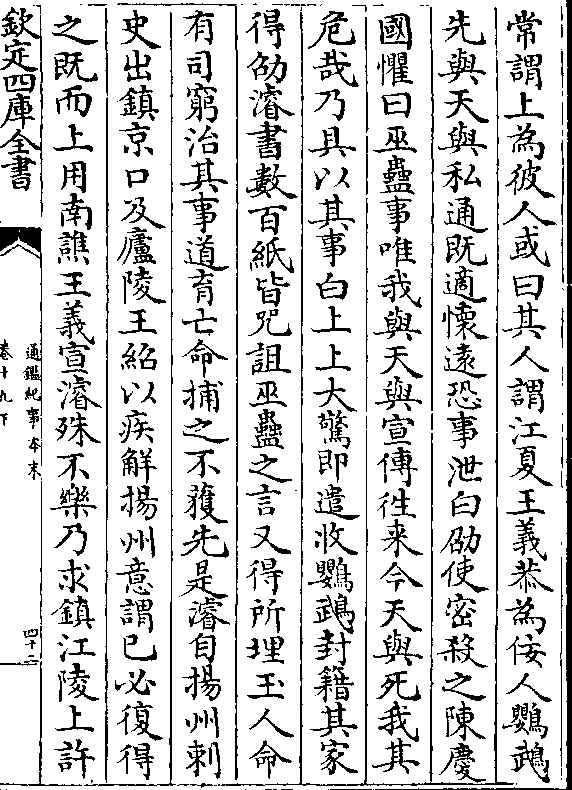 常謂上為彼人或曰其人謂江夏王義恭為佞人鸚鵡
先與天與私通既適懷遠恐事泄白劭使密殺之陳慶
國懼曰巫蠱事唯我與天與宣傳徃来今天與死我其
危哉乃具以其事白上上大驚即遣收鸚鵡封籍其家
得劭濬書數百紙皆咒詛巫蠱之言又得所埋玉人命
有司窮治其事道育亡命捕之不獲先是濬自揚州刺
史出鎮京口及廬陵王紹以疾解揚州意謂已必復得
之既而上用南譙王義宣濬殊不樂乃求鎮江陵上許
欽定四庫全書
通鑑紀事本末
卷十九下
四十二